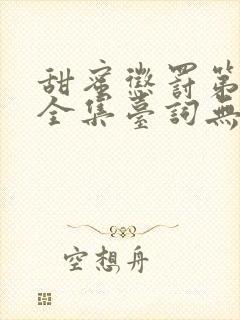 甜蜜懲罰第
全集臺詞無
空想舟